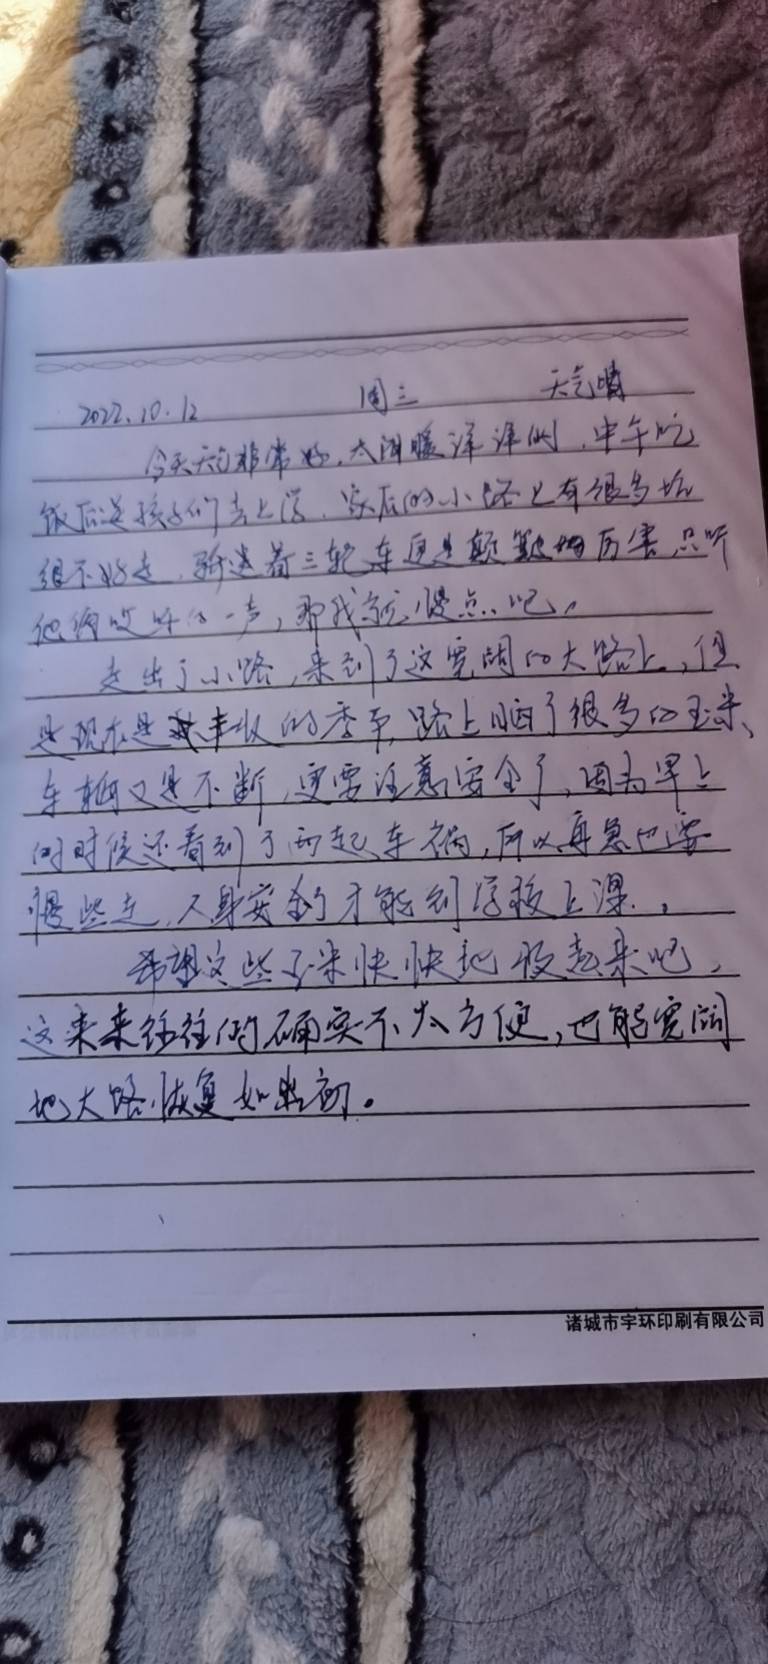 2022.10.12 周三 天气晴
今天天气非常好，太阳暖洋洋的，中午吃
饭后送孩子们去上学，家后的小路上有很多坑
很不好走，骑着三轮车更是颠簸的厉害，只听
他俩哎呀的一声，那我就慢点吧，
走出了小路，来到了这宽阔的大路上，但
是现在是丰收的季节，路上晒了很多的玉米、
车辆又是不断，更要注意安全了，因为早上
的时候还看到了两起车祸，所以再急也要
慢些走，人身安全了才能到学校上课.，
希望这些玉米快快地收起来吧，
这来来往往的确实不太方便，也能宽阔
地大路恢复如当初。
诸城市宇环印刷有限公司